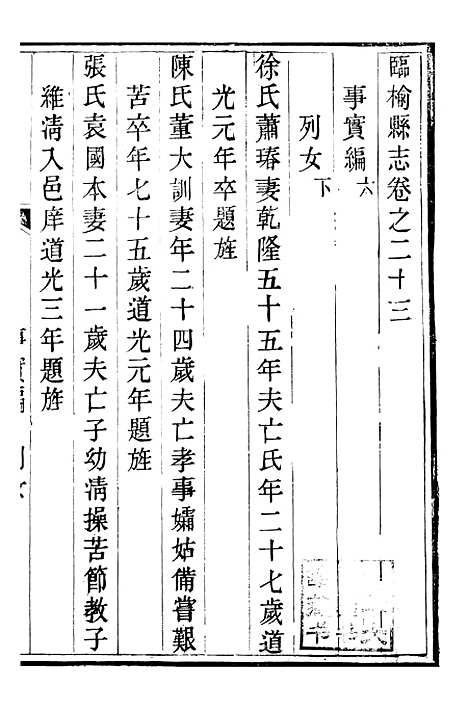 臨榆縣志卷之二十三
事實編六
列女下
徐氏蕭瑃妻乾隆五十五年夫亡氏年二十七歲道
光元年卒題旌
陳氏董大訓妻年二十四歲夫亡孝事孀姑備嘗艱
苦卒年七十五歲道光元年題旌
張氏袁國本妻二十一歲夫亡子幼淸操苦節教子
維淸入邑庠道光三年題旌
事實編
列女